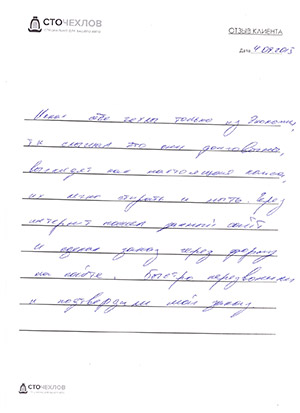 СТОЧЕХЛОВ
ОТЗЫВ КЛИЕНТА
Дата 4.09.2013
Искал авто чехлы только из Экокожи,
т.к слышал что они долговечны,
выглядят как настоящая кожа,
их легко стирать и мыть. Через
интернет нашел данный сайт
и сделал заказ через форму
на сайте. Быстро перезвонили
и подтвердили мой заказ.
СТОЧЕХЛОВ